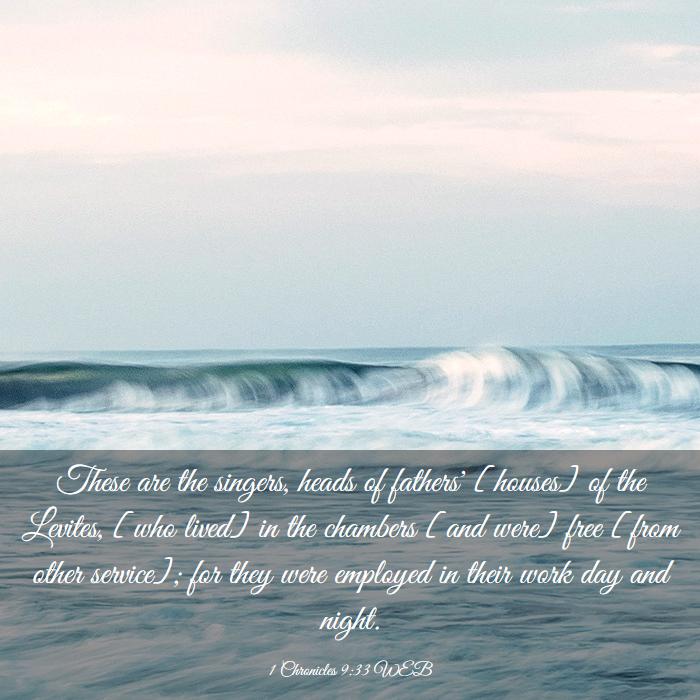 These are the singers, heads of fathers’ [ houses] of the
Levites, [ who lived] in the chambers [ and were] free [ from
other service]; for they were employed in their work day and
night.
1 Chronicles 9:33 WEB